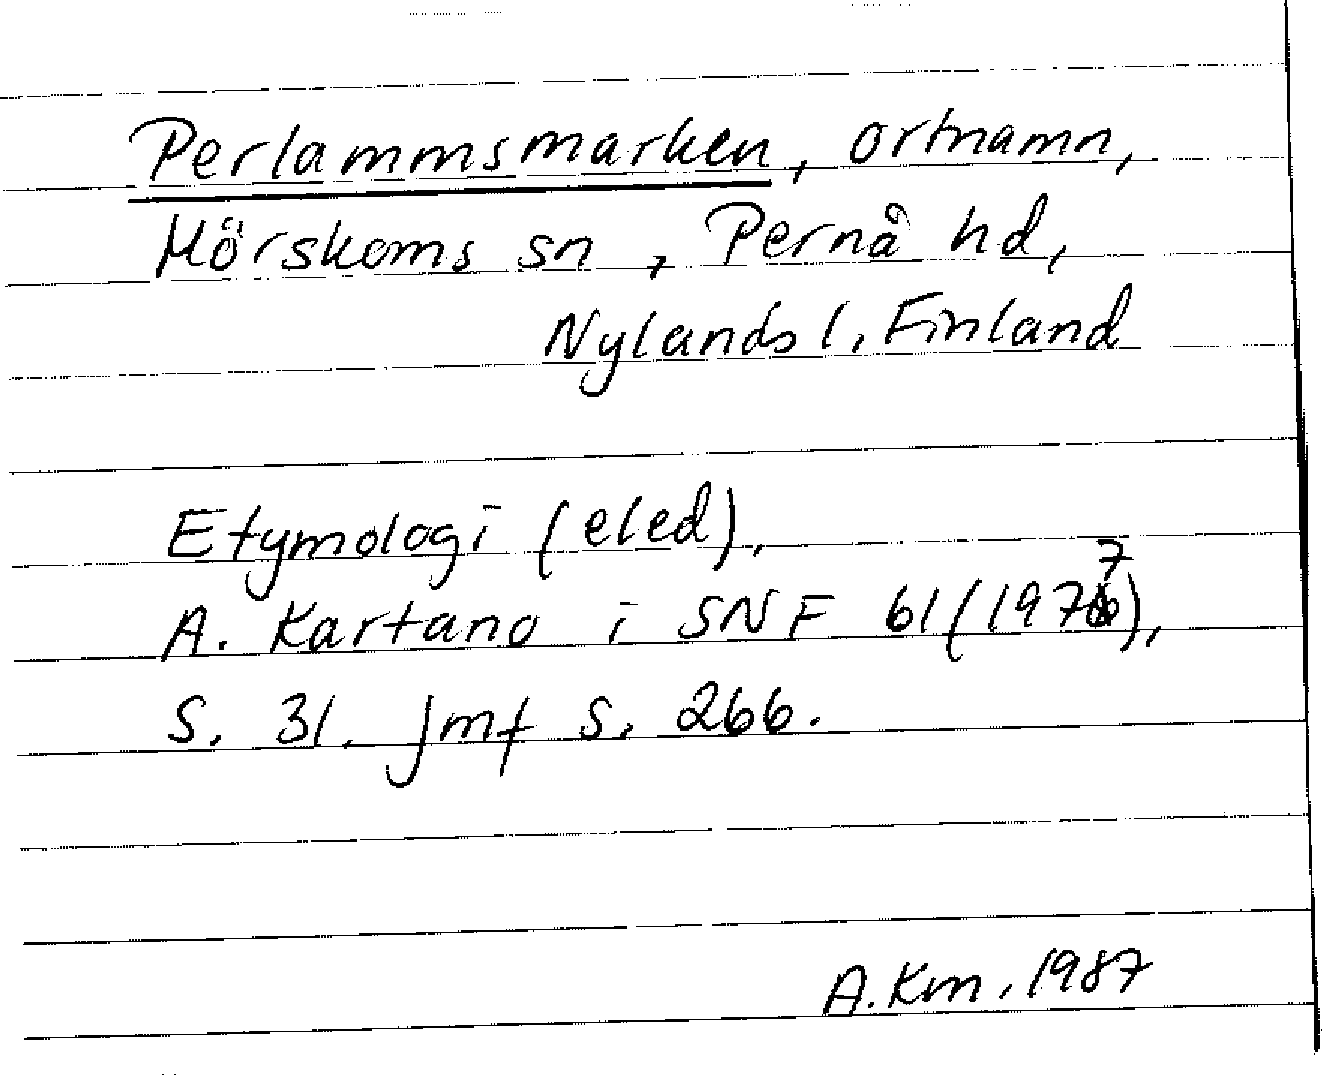 Perlammsmarken, ortnamn,
Mörskoms sn, Pernå hd,
Nylands l, Finland
Etymologi (eled),
A. Kartano i SNF 61 (1977),
S. 31. Jmf s. 266.
A. Km. 1987